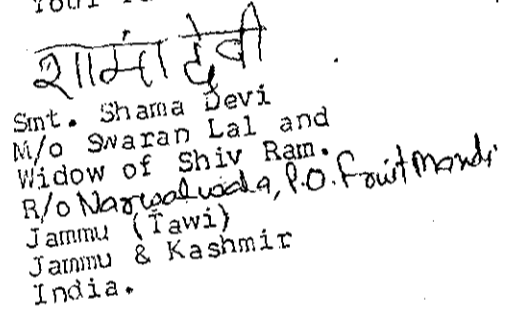 शामां देवी
Smt. Shama Devi
M/o Swaran Lal and
Widow of Shiv Ram.
R/o Narwalwala, P.O. Fruit Mandi
Jammu (Tawi)
Jammu & Kashmir
India.